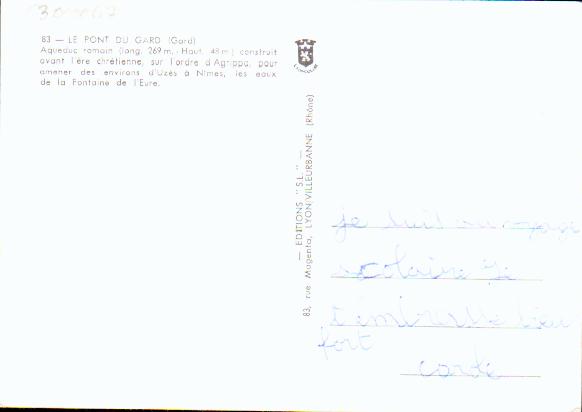 83 — LE PONT DU GARD (Gard)
Aqueduc romain (long. 269 m. - Haut. 48 m.) construit
avant l'ère chrétienne, sur l'ordre d'Agrippa, pour
amener des environs d'Uzès à Nîmes, les eaux
de la Fontaine de l'Eure.
— EDITIONS "S.L." —
83, rue Magenta, LYON-VILLEURBANNE (Rhône)
je suis en voyage
scolaire je
t'embrasse bien
fort